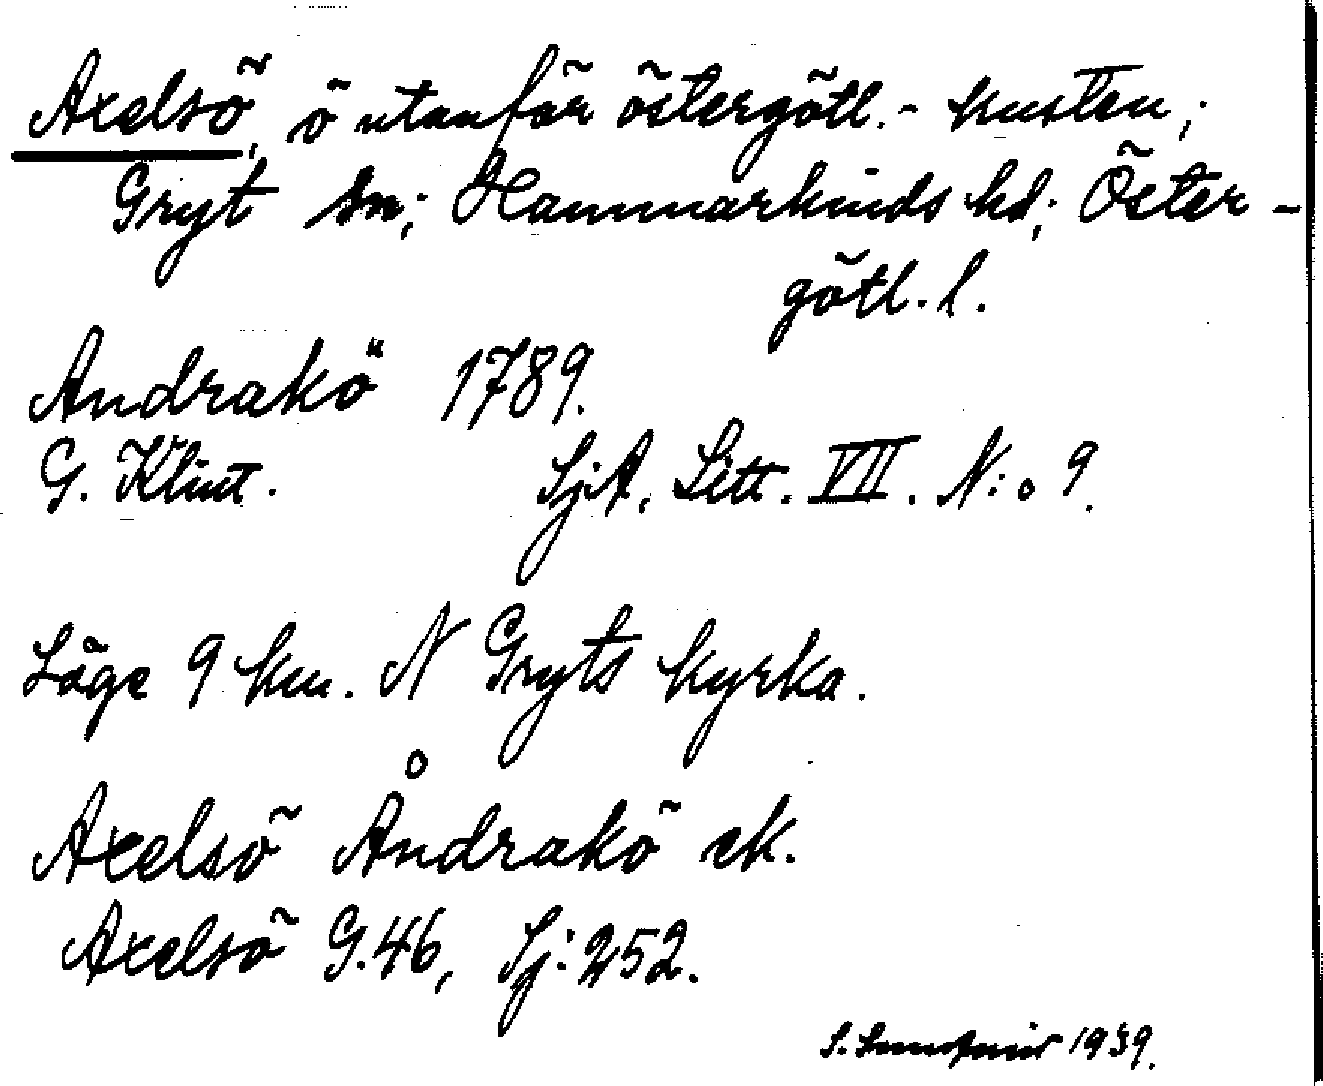 Axelsö, ö utanför östergötl.-kusten;
Gryt sn; Hammarkinds hd; Öster-
götl. l.
Andrakö 1789.
G. Klint. SjA. Litt. VII. N:o 9.
Läge 9 km. N Gryts kyrka.
Axelsö Åndrakö ek.
Axelsö G.46, Sj:252.
S. 1939.